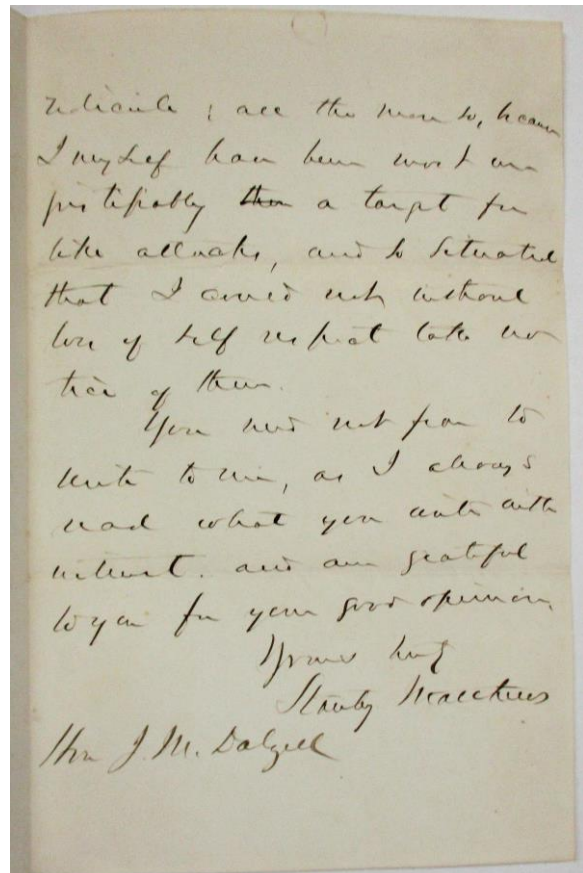 ridicule; all the more so, because
I myself have been most un
justifiably then a target for
like attacks, and so situated
that I could not, without
loss of self respect take no
tice of them.
You need not fear to
write to me, as I always
read what you write with
interest. and am grateful
to you for your good opinion.
Yours truly
Stanley Matthews
Hon J. M. Dalzell